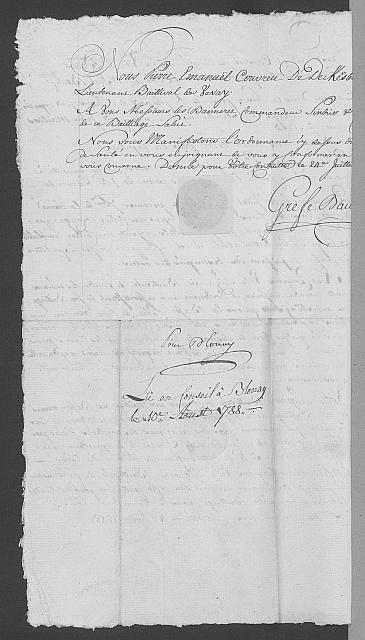 Nous Pierre Emanuël Couvreu De Deckesb
Lieutenant Baillival de Vevay
A Vous Messieurs les Banneret Commandeur Sindics &
de ce Bailliage Salut.
Nous vous Manifestons l'ordonnance cy dessus de
de Santé en vous enjoignant de vous y Conformer en
vous concerne. Donné pour Votre conduitte le 24e Juillet
Greffe Bail
Pour Blonay
Lû en Conseil à Blonay
le 10e Aoust 1788.